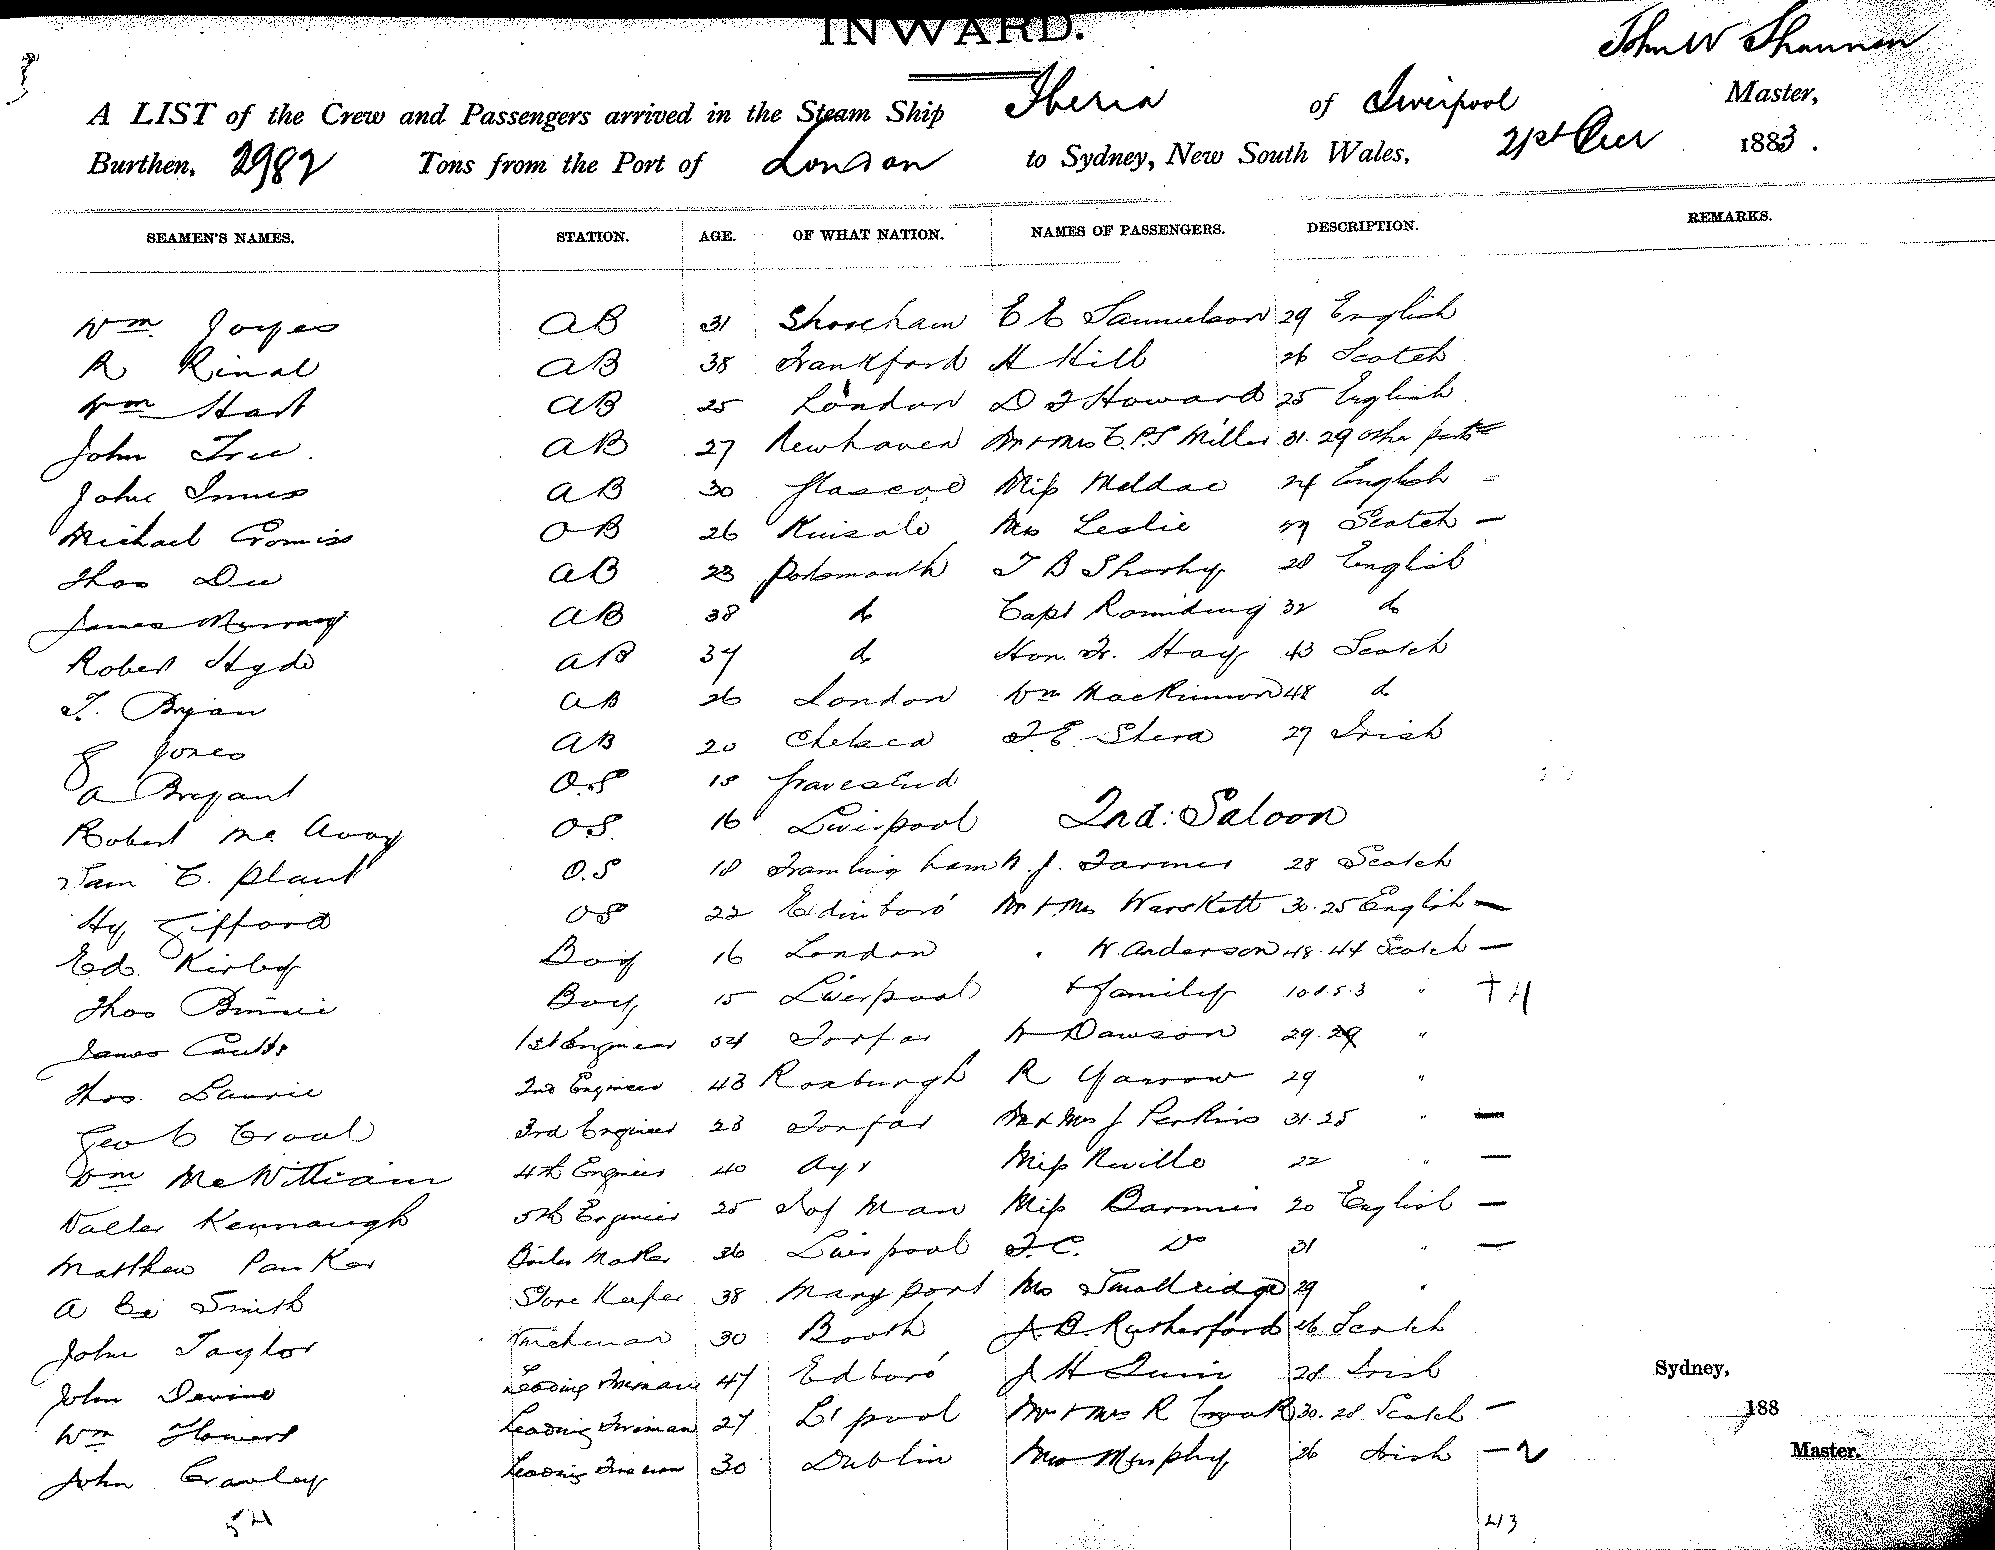 INWARD.
John W Shannon
A LIST of the Crew and Passengers arrived in the Steam Ship Iberia of Liverpool Master,
Burthen, 2982 Tons from the Port of London to Sydney, New South Wales, 21st 1883.
SEAMEN'S NAMES. STATION. AGE. OF WHAT NATION. NAMES OF PASSENGERS. DESCRIPTION. REMARKS.
Wm Joyes AB 31 Shoreham E E Samuelson 29 English
R Rinal AB 38 Frankford H Hill 26 Scotch
Wm Hart AB 25 London D J Howard 25 English
John Tree. AB 27 Newhaven Mr + Mrs Miller 31. 29
John Innes AB 30 Glascoe Miss Meldae 24 English
Michael OB 26 Kinsale Mrs Leslie Scotch —
Thos Dee AB 23 Potsmouth T B 28 English
James Murray AB 38 do Capt 32 do
Robert Hyde AB 37 do Hon. Hay 43 Scotch
T. Bryan AB 26 London Wm MacKinnon 48 do
E Jones AB 20 Chelsea Shera 29 Irish
A Bryant O.S 18 Gravesend
Robert Mc Avoy O.S. 16 Liverpool 2nd: Saloon
Sam E. Plant O.S 18 Framlingham J. Farmer 28 Scotch
Hy Gifford OS 22 Edinboro' Mr + Mrs Warskett 30. 25 English —
Ed. Kirby Boy 16 London " W. Anderson 48. 44 Scotch —
Thos Binnie Boy 15 Liverpool + family 10 8 5 3 "
James Coutts 1st Engineer 54 Forfar W Dawson 29. 29 "
Thos. Laurie 2nd Engineer 43 Roxburgh R Yarrow 29 "
Geo C Croal 3rd Engineer 23 Forfar Mr + Mrs J Perkins 31. 25 " —
Wm McWilliam 4th Engineer 40 Ayr Miss Neville 22 " —
Walter Kennaugh 5th Engineer 25 I of Man Miss 20 English —
Matthew Parker Boiler Maker 36 Liverpool Do 31 " —
A Smith Store Keeper 38 Maryport Mrs Smallridge 29 "
John Taylor 30 Booth J. B. Rutherford 26 Scotch
John Devine Leading Fireman 47 Edboro' J H Quin 28 Irish
Sydney,
Wm Howard Leading Fireman 27 L'pool Mr + Mrs R Crook 30. 28 Scotch —
188
John Crawley Leading Fireman 30 Dublin Mrs Murphy 26 Irish —
Master.
54 43